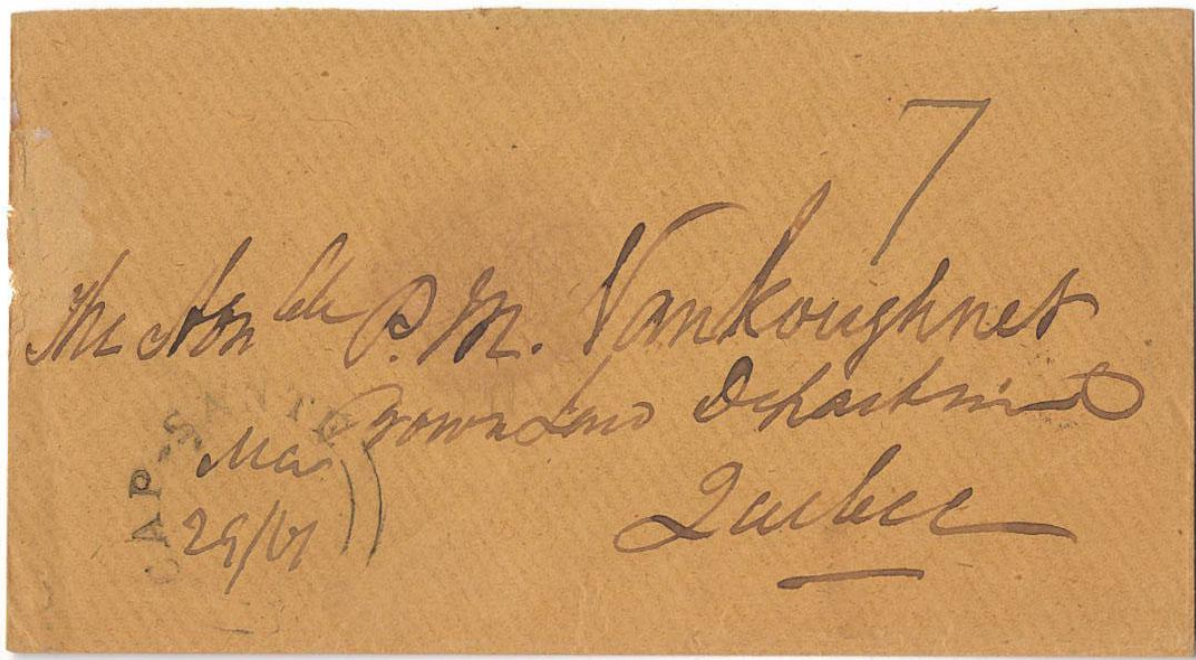 7
The Honble P. M. Vankoughnet
Crown Land Department
Quebec
CAP-SANTE
Mar
29/61